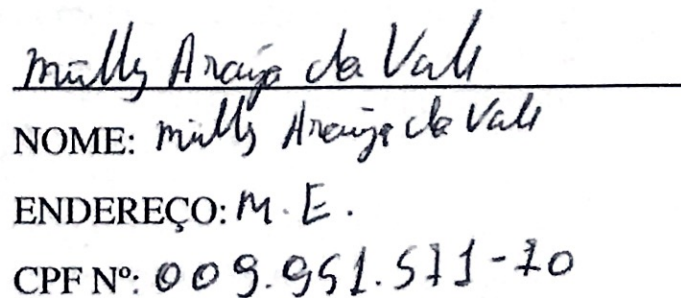 milly Araujo do Vale
NOME: milly Araujo do Vale
ENDEREÇO: M. E.
CPF Nº: 009.951.571-70